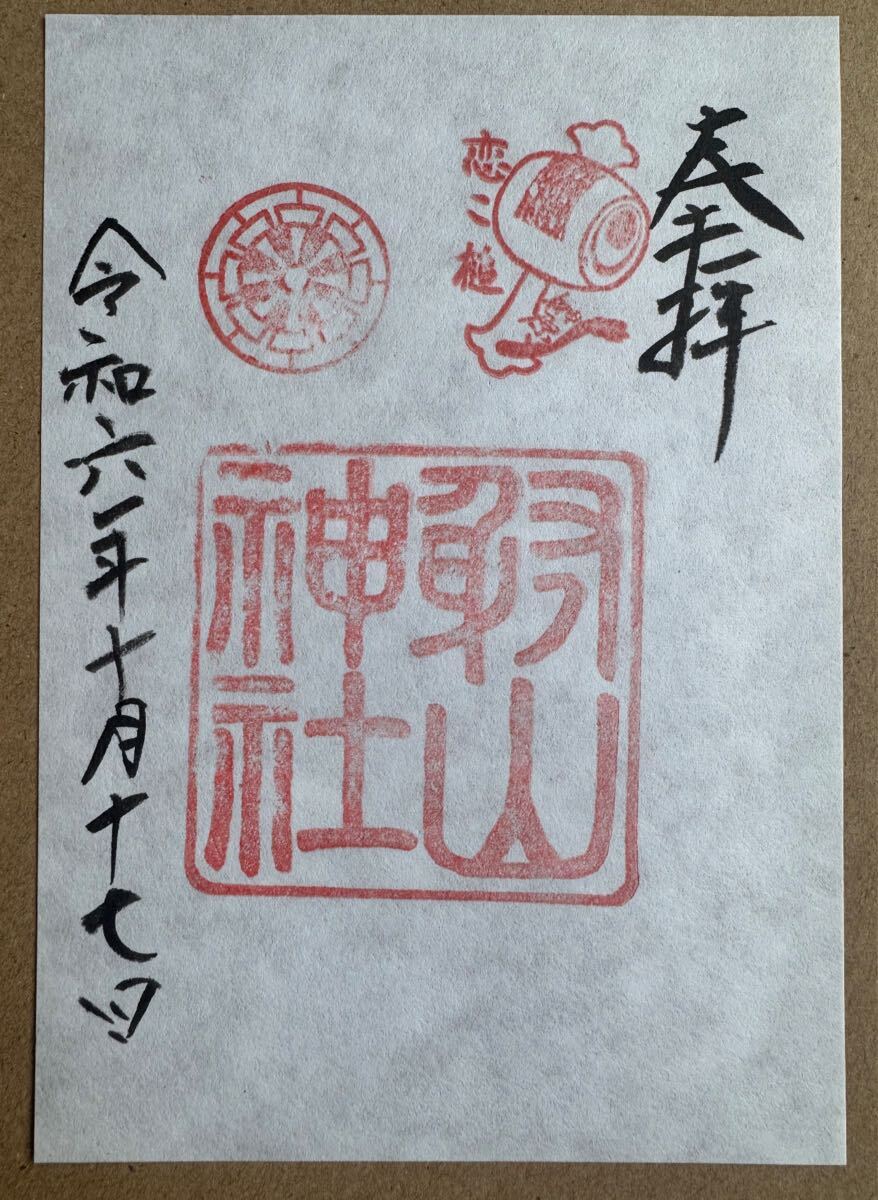 奉拝
恋こ槌
射山
神社
令和六年十月十七日